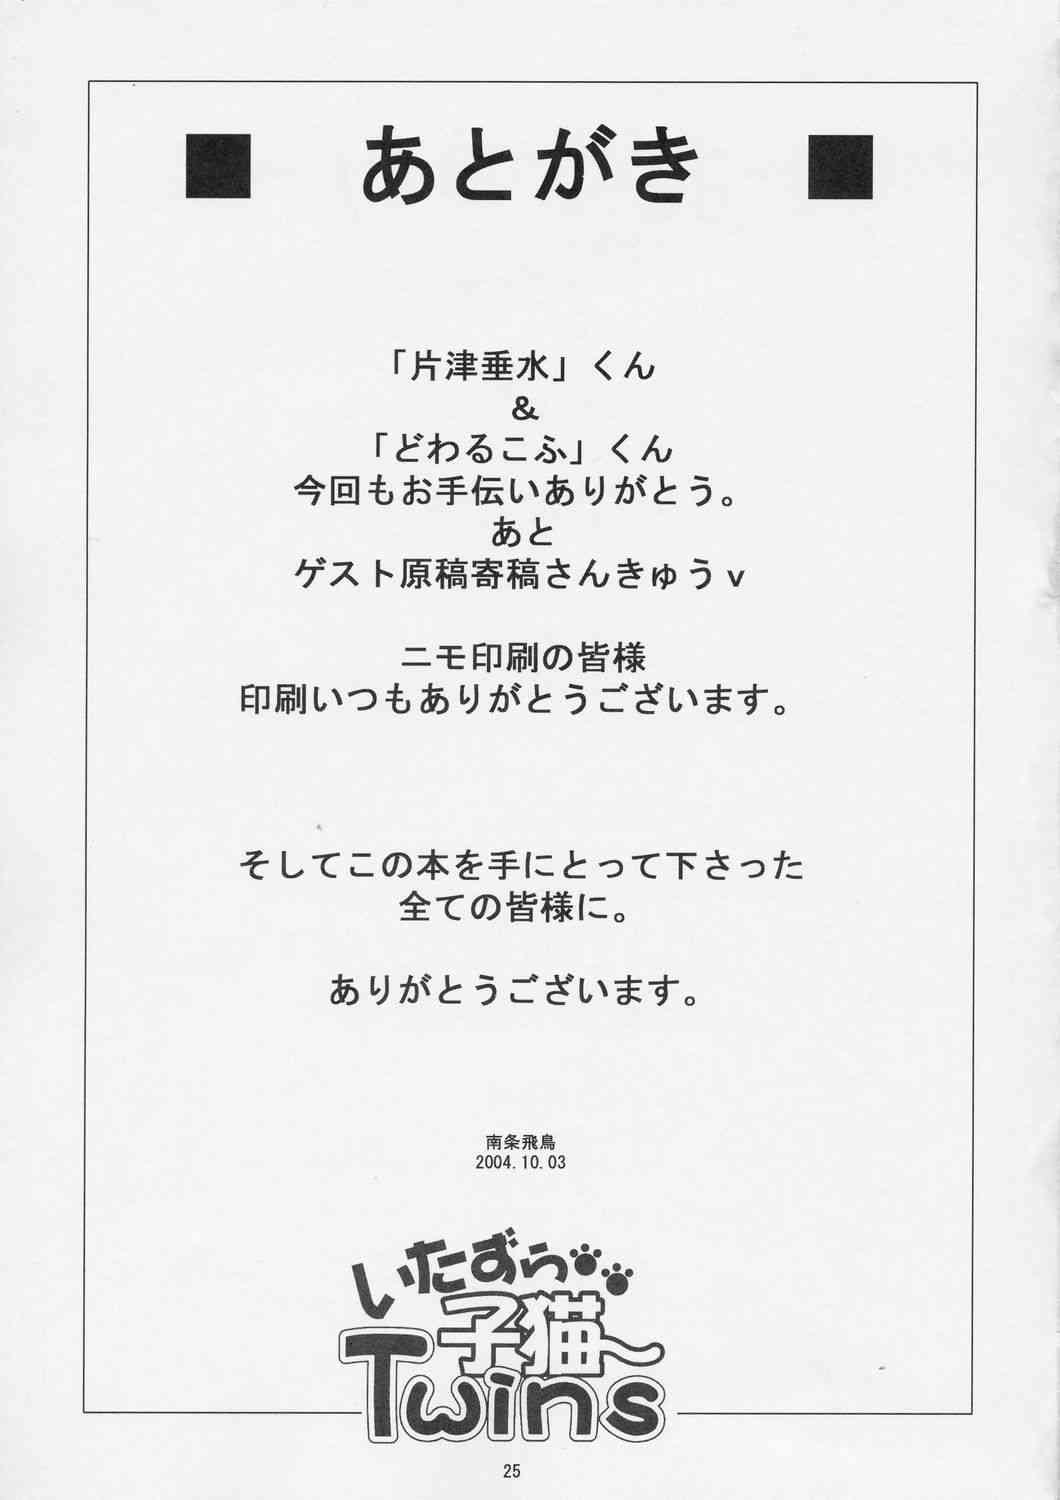 ■ あとがき ■
「片津垂水」くん
&
「どわるこふ」くん
今回もお手伝いありがとう。
あと
ゲスト原稿寄稿さんきゅうｖ
ニモ印刷の皆様
印刷いつもありがとうございます。
そしてこの本を手にとって下さった
全ての皆様に。
ありがとうございます。
南条飛鳥
2004.10.03
いたずら
子猫
Twins
25